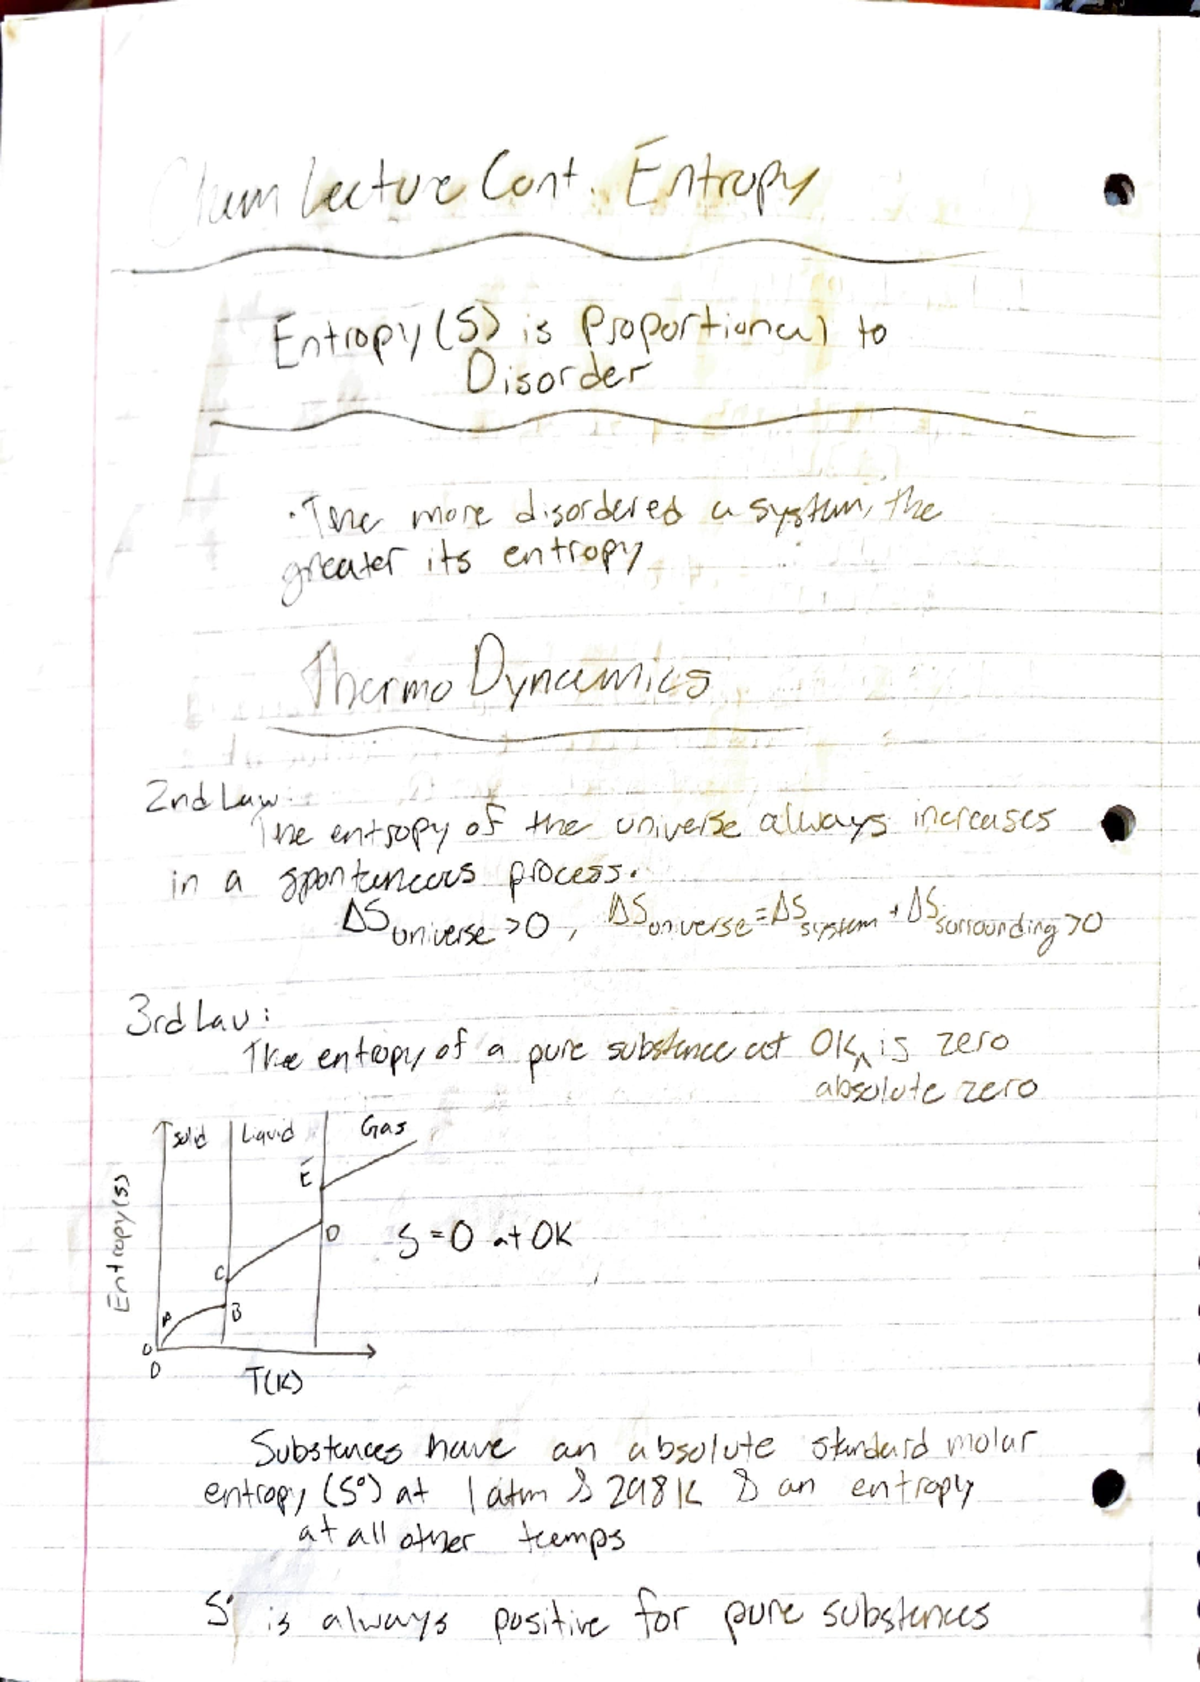 Chem Lecture Cont. Entropy
Entropy (S) is Proportional to
Disorder
• The more disordered a system, the
greater its entropy
Thermo Dynamics
2nd Law:
The entropy of the universe always increases
in a spontaneous process.
ΔS universe >0, ΔS universe = ΔS system + ΔS surrounding >0
3rd Law:
The entropy of a pure substance at 0K ^ is zero
absolute zero
Solid Liquid Gas
E
Entropy (S)
D S = 0 at 0K
C
A B
0
0
T(K)
Substances have an absolute standard molar
entropy (S°) at 1 atm & 298 K & an entropy
at all other temps
S° is always positive for pure substances